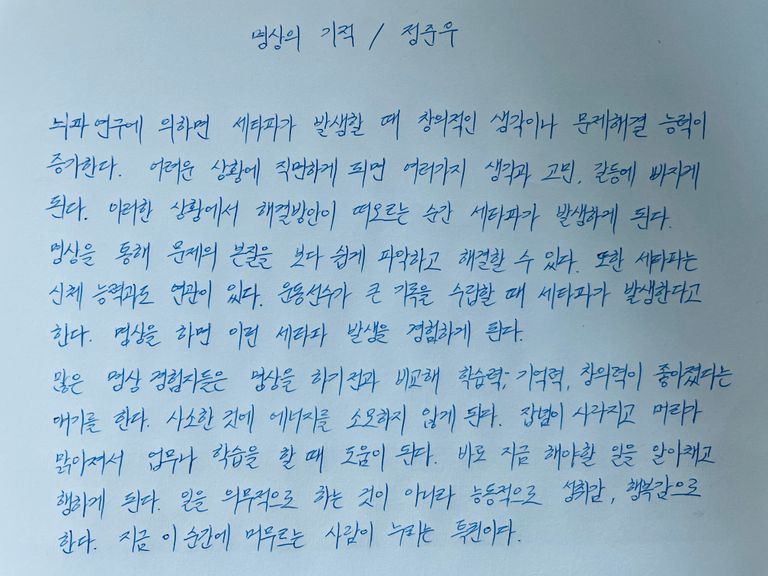 명상의 기적 / 정준우
뇌파 연구에 의하면 세타파가 발생할 때 창의적인 생각이나 문제해결 능력이
증가한다. 어려운 상황에 직면하게 되면 여러가지 생각과 고민, 갈등에 빠지게
된다. 이러한 상황에서 해결방안이 떠오르는 순간 세타파가 발생하게 된다.
명상을 통해 문제의 본질을 보다 쉽게 파악하고 해결할 수 있다. 또한 세타파는
신체 능력과도 연관이 있다. 운동선수가 큰 기록을 수립할 때 세타파가 발생한다고
한다. 명상을 하면 이런 세타파 발생을 경험하게 된다.
많은 명상 경험자들은 명상을 하기전과 비교해 학습력, 기억력, 창의력이 좋아졌다는
얘기를 한다. 사소한 것에 에너지를 소모하지 않게 된다. 잡념이 사라지고 머리가
맑아져서 업무나 학습을 할 때 도움이 된다. 바로 지금 해야할 일을 알아채고
행하게 된다. 일을 의무적으로 하는 것이 아니라 능동적으로 성취감, 행복감으로
한다. 지금 이 순간에 머무르는 사람이 누리는 특권이다.